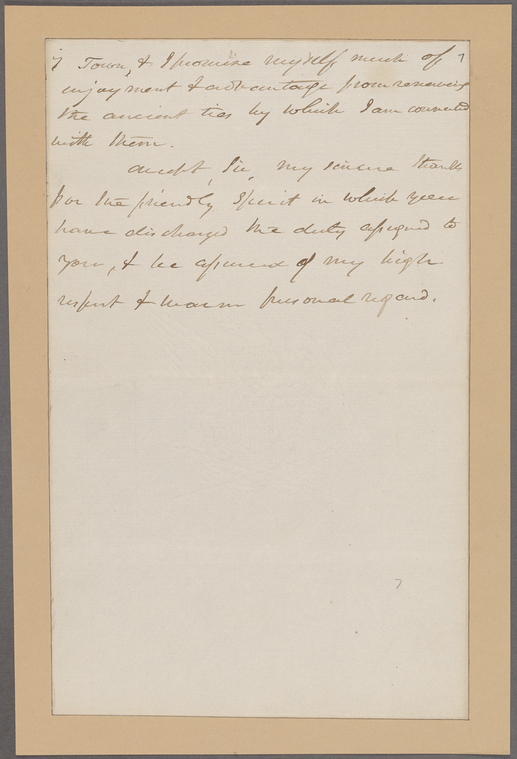 7 Town, & I promise myself much of 7
enjoyment & advantage from renewing
the ancient ties by which I am connected
with them.
Accept, Sir, my sincere thanks
for the friendly spirit in which you
have discharged the duty assigned to
you, & be assured of my high
respect & warm personal regard.
7